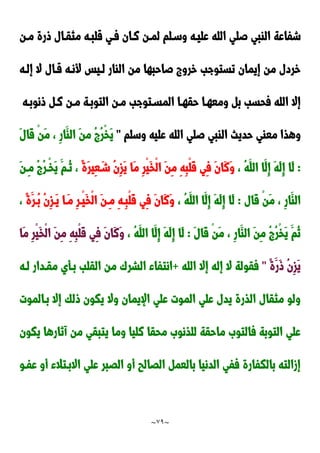 شفاعة النبي صلي الله عليه وسلم لمن كان في قلبه مثقال ذرة من
خردل من إيمان تستوجب خروج صاحبها من النار ليس لأنه قال لا إله
إلا الله فحسب بل ومعها حقها المستوجب من التوبة من كل ذنوبه
وهذا معني حديث النبي صلي الله عليه وسلم " يَخْرُجُ مِنَ النَّارِ ، مَنْ قَالَ
: لَا إِلَهَ إِلَّا اللَّهُ ، وَكَانَ فِي قَلْبِهِ مِنَ الْخَيْرِ مَا يَزِنُ شَعِيرَةً ، ثُمَّ يَخْرُجُ مِنَ
النَّارِ ، مَنْ قال : لَا إِلَهَ إِلَّا اللَّهُ ، وَكَانَ فِي قَلْبِهِ مِنَ الْخَيْرِ مَا يَزِنُ بُرَّةً ،
ثُمَّ يَخْرُجُ مِنَ النَّارِ ، مَنْ قَالَ : لَا إِلَهَ إِلَّا اللَّهُ ، وَكَانَ فِي قَلْبِهِ مِنَ الْخَيْرِ مَا
يَزِنُ ذَرَّةً " فقولة لا إله إلا الله +انتفاء الشرك من القلب بأي مقدار له
ولو مثقال الذرة يدل علي الموت علي الإيمان ولا يكون ذلك إلا بالموت
علي التوبة فالتوب ماحقة للذنوب محقا كليا وما يتبقي من آثارها يكون
إزالته بالكفارة ففي الدنيا بالعمل الصالح أو الصبر علي الابتلاء أو عفو
~٧٩~